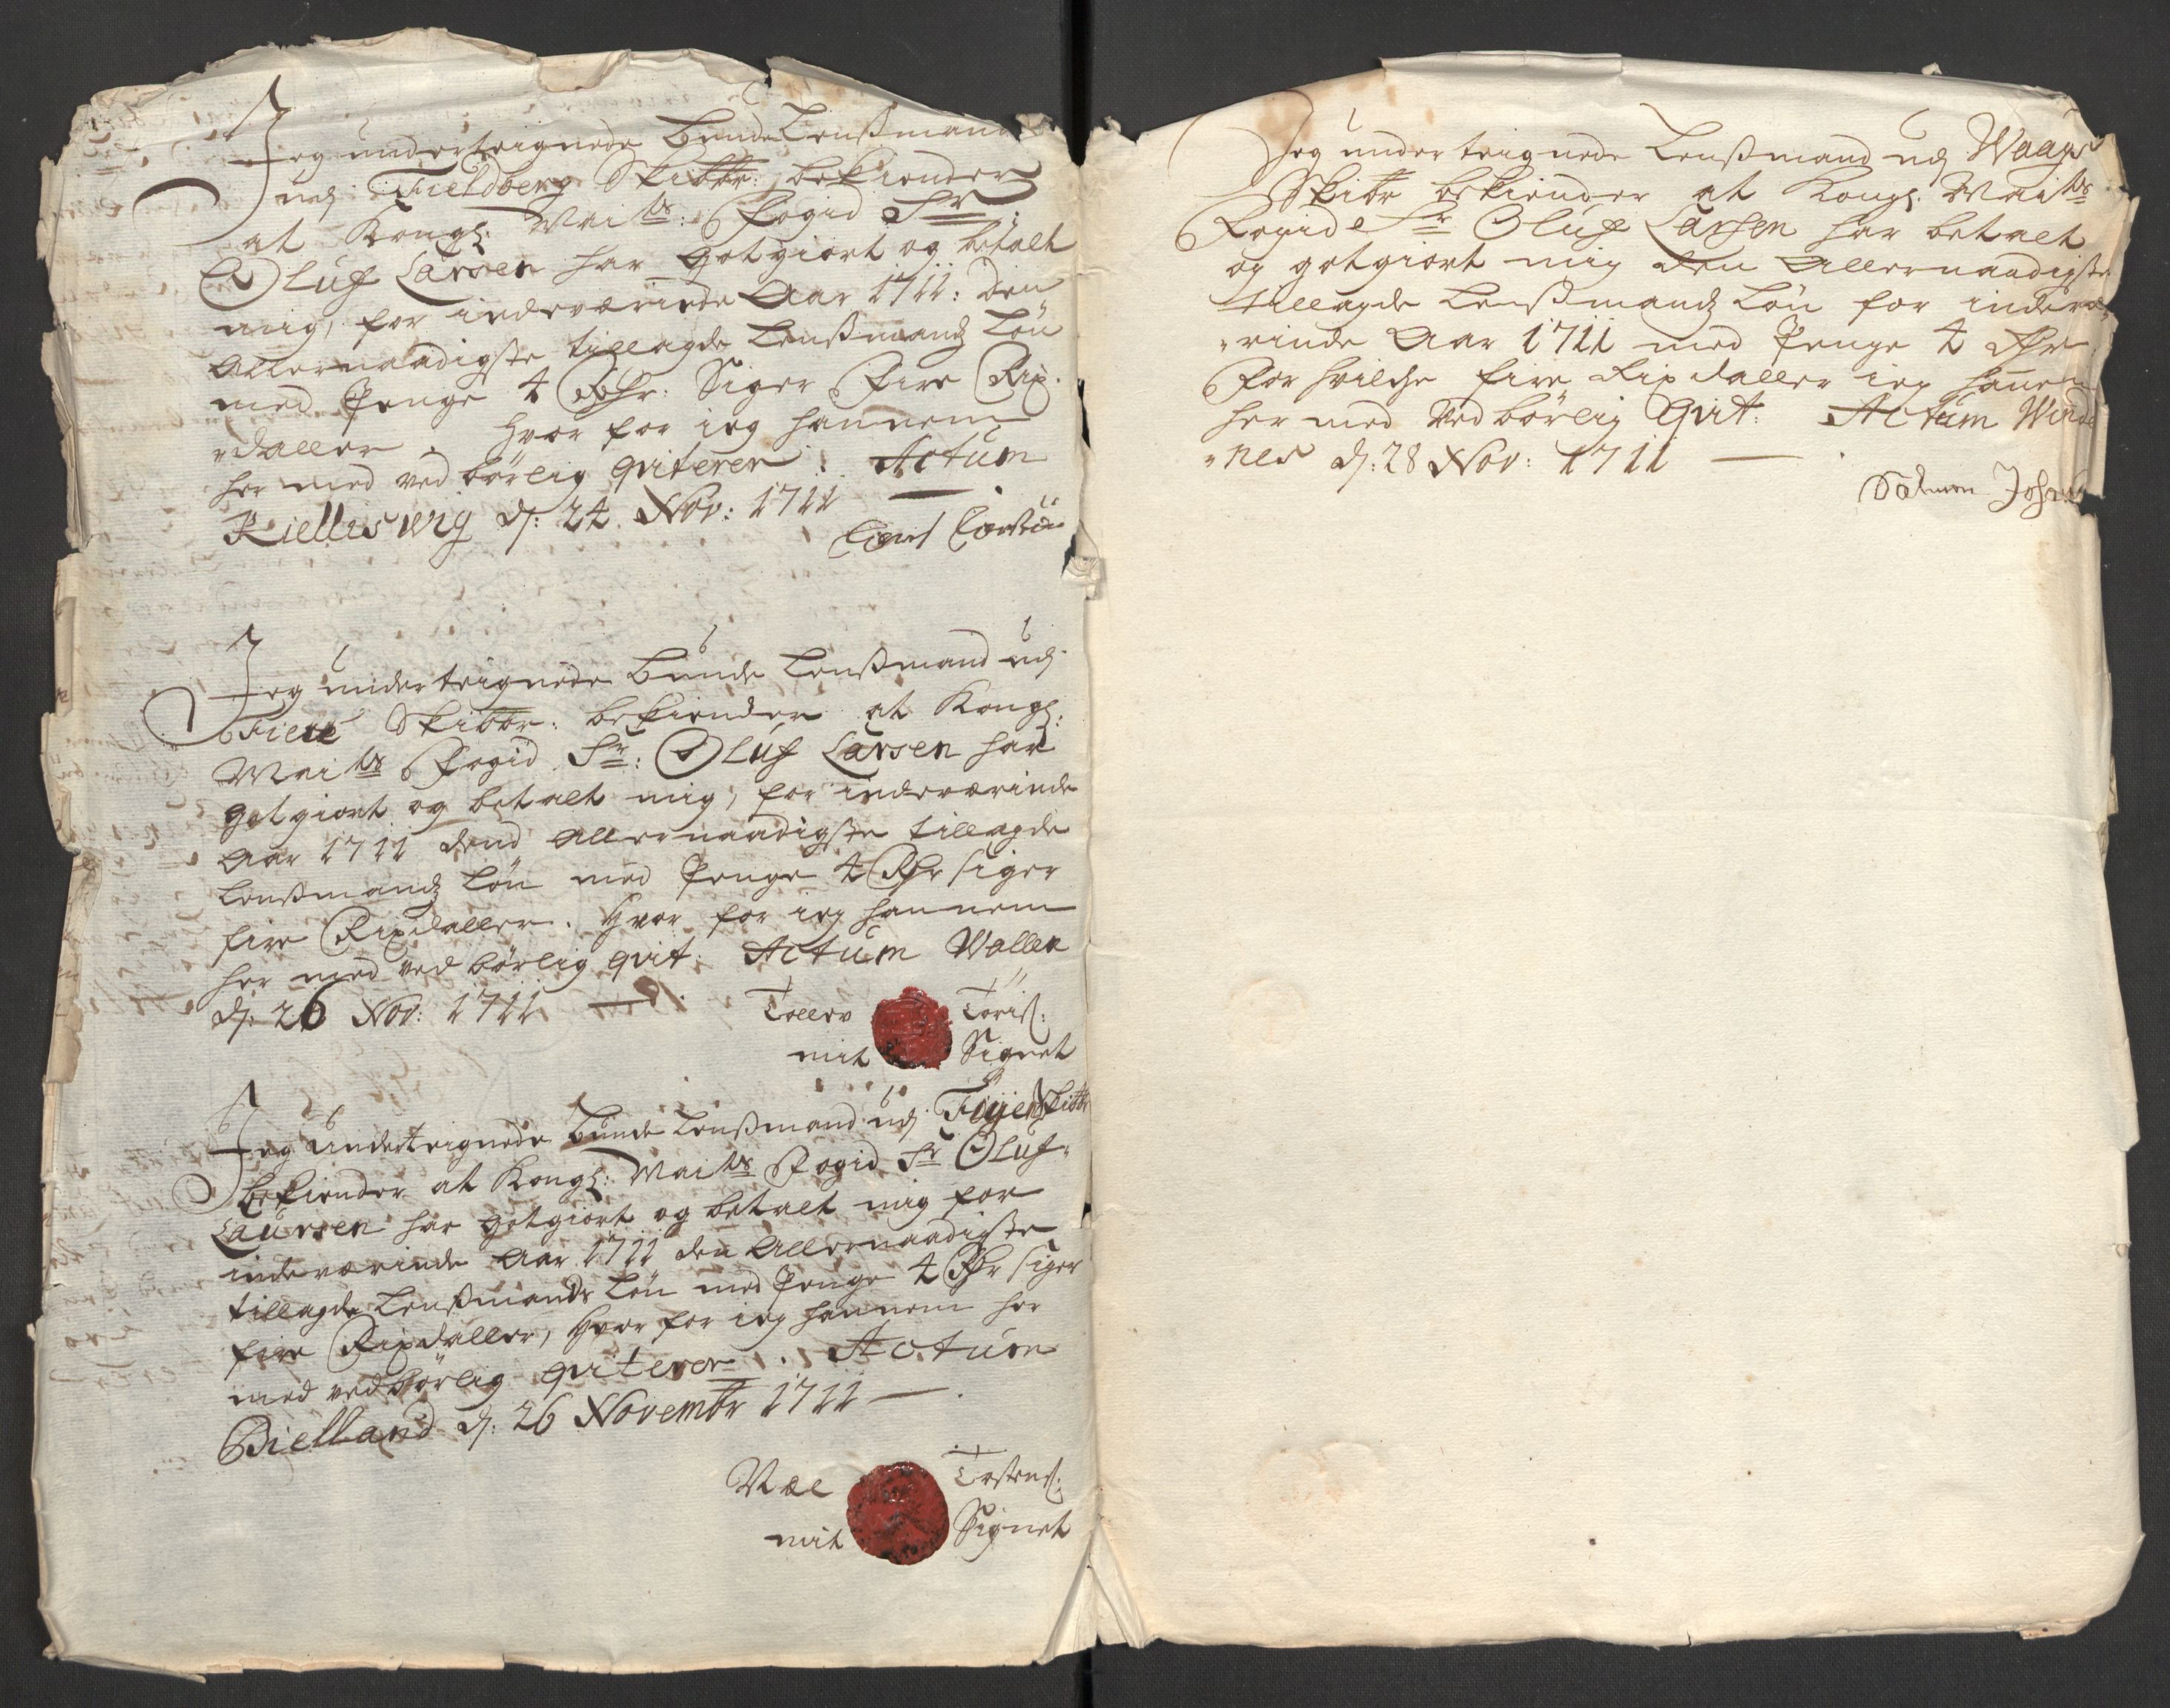 Jeg underteignede Bunde Lenßmand
udj Fieldberg Skibbr: bekiender
at Kongl: Maits: Fogid Sr:
Oluf Larsen har gotgiort og betalt
mig, for indeværinde Aar 1711: den
Allernaadigste tillagde Lenßmandz Lön
med Penge 4 Rdr: Siger Fire Rix-
"daller. Hvor for ieg hannem
her med ved börlig qviterer. Actum
Kielleswig dj: 24 Nov: 1711

Jeg underteignede Bunde Lenßmand udj
Fiere Skibbr: bekiender at Kongl:
Maits Fogid Sr: Oluf Larsen har
gotgiort og betalt mig, for indeværinde
Aar 1711 dend Allernaadigste tillagde
Lenßmandz Lön med Penge 4 Rdr siger
fire Rixdaller. Hvor for ieg hannem
her med ved börlig qvit: Actum Wallen
dj: 26 Nov: 1711
Tollev Törisß:
mit Signet

Jeg underteignede Bunde Lenßmand udj Föyen Skibbr
bekiender at Kongl: Maits Fogid Sr Oluf
Laursen har gotgiort og betalt mig for
indeværinde Aar 1711 den Allernaadigste
tillagde Lenßmands Lön med Penge 4 Rdr siger
fire Rixdaller, Hvor for ieg hannem her
med vedbörlig qviterer. Actum
Bielland dj: 26 Novembr 1711
Niel Tostens:
mit Signet

Jeg underteignede Lenßmand udj Waags
Skibr bekiender at Kongl. Maits
Fogid Sr Oluf Larsen har betalt
og gotgiort mig den Allernaadigste
tillagde Lenßmandz Lön for indevæ
"rinde Aar 1711 med Penge 4 Rdr
For hvilche fire Rixdaller ieg hannem
her med ved börlig Qvit: Actum Winde
"nes dj: 28 Nov: 1711
Salmon